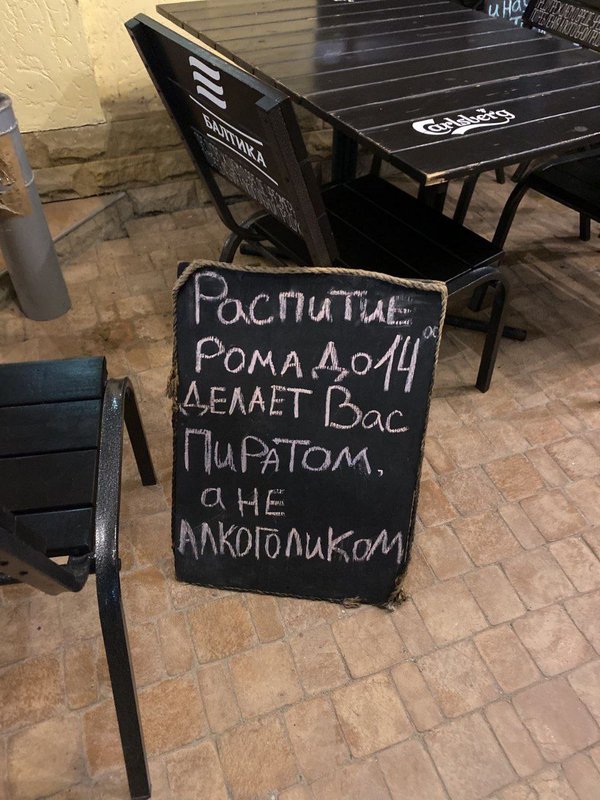 и на
Carlsberg
БАЛТИКА
Распитие
рома до 14⁰⁰
делает Вас
Пиратом,
а не
алкоголиком